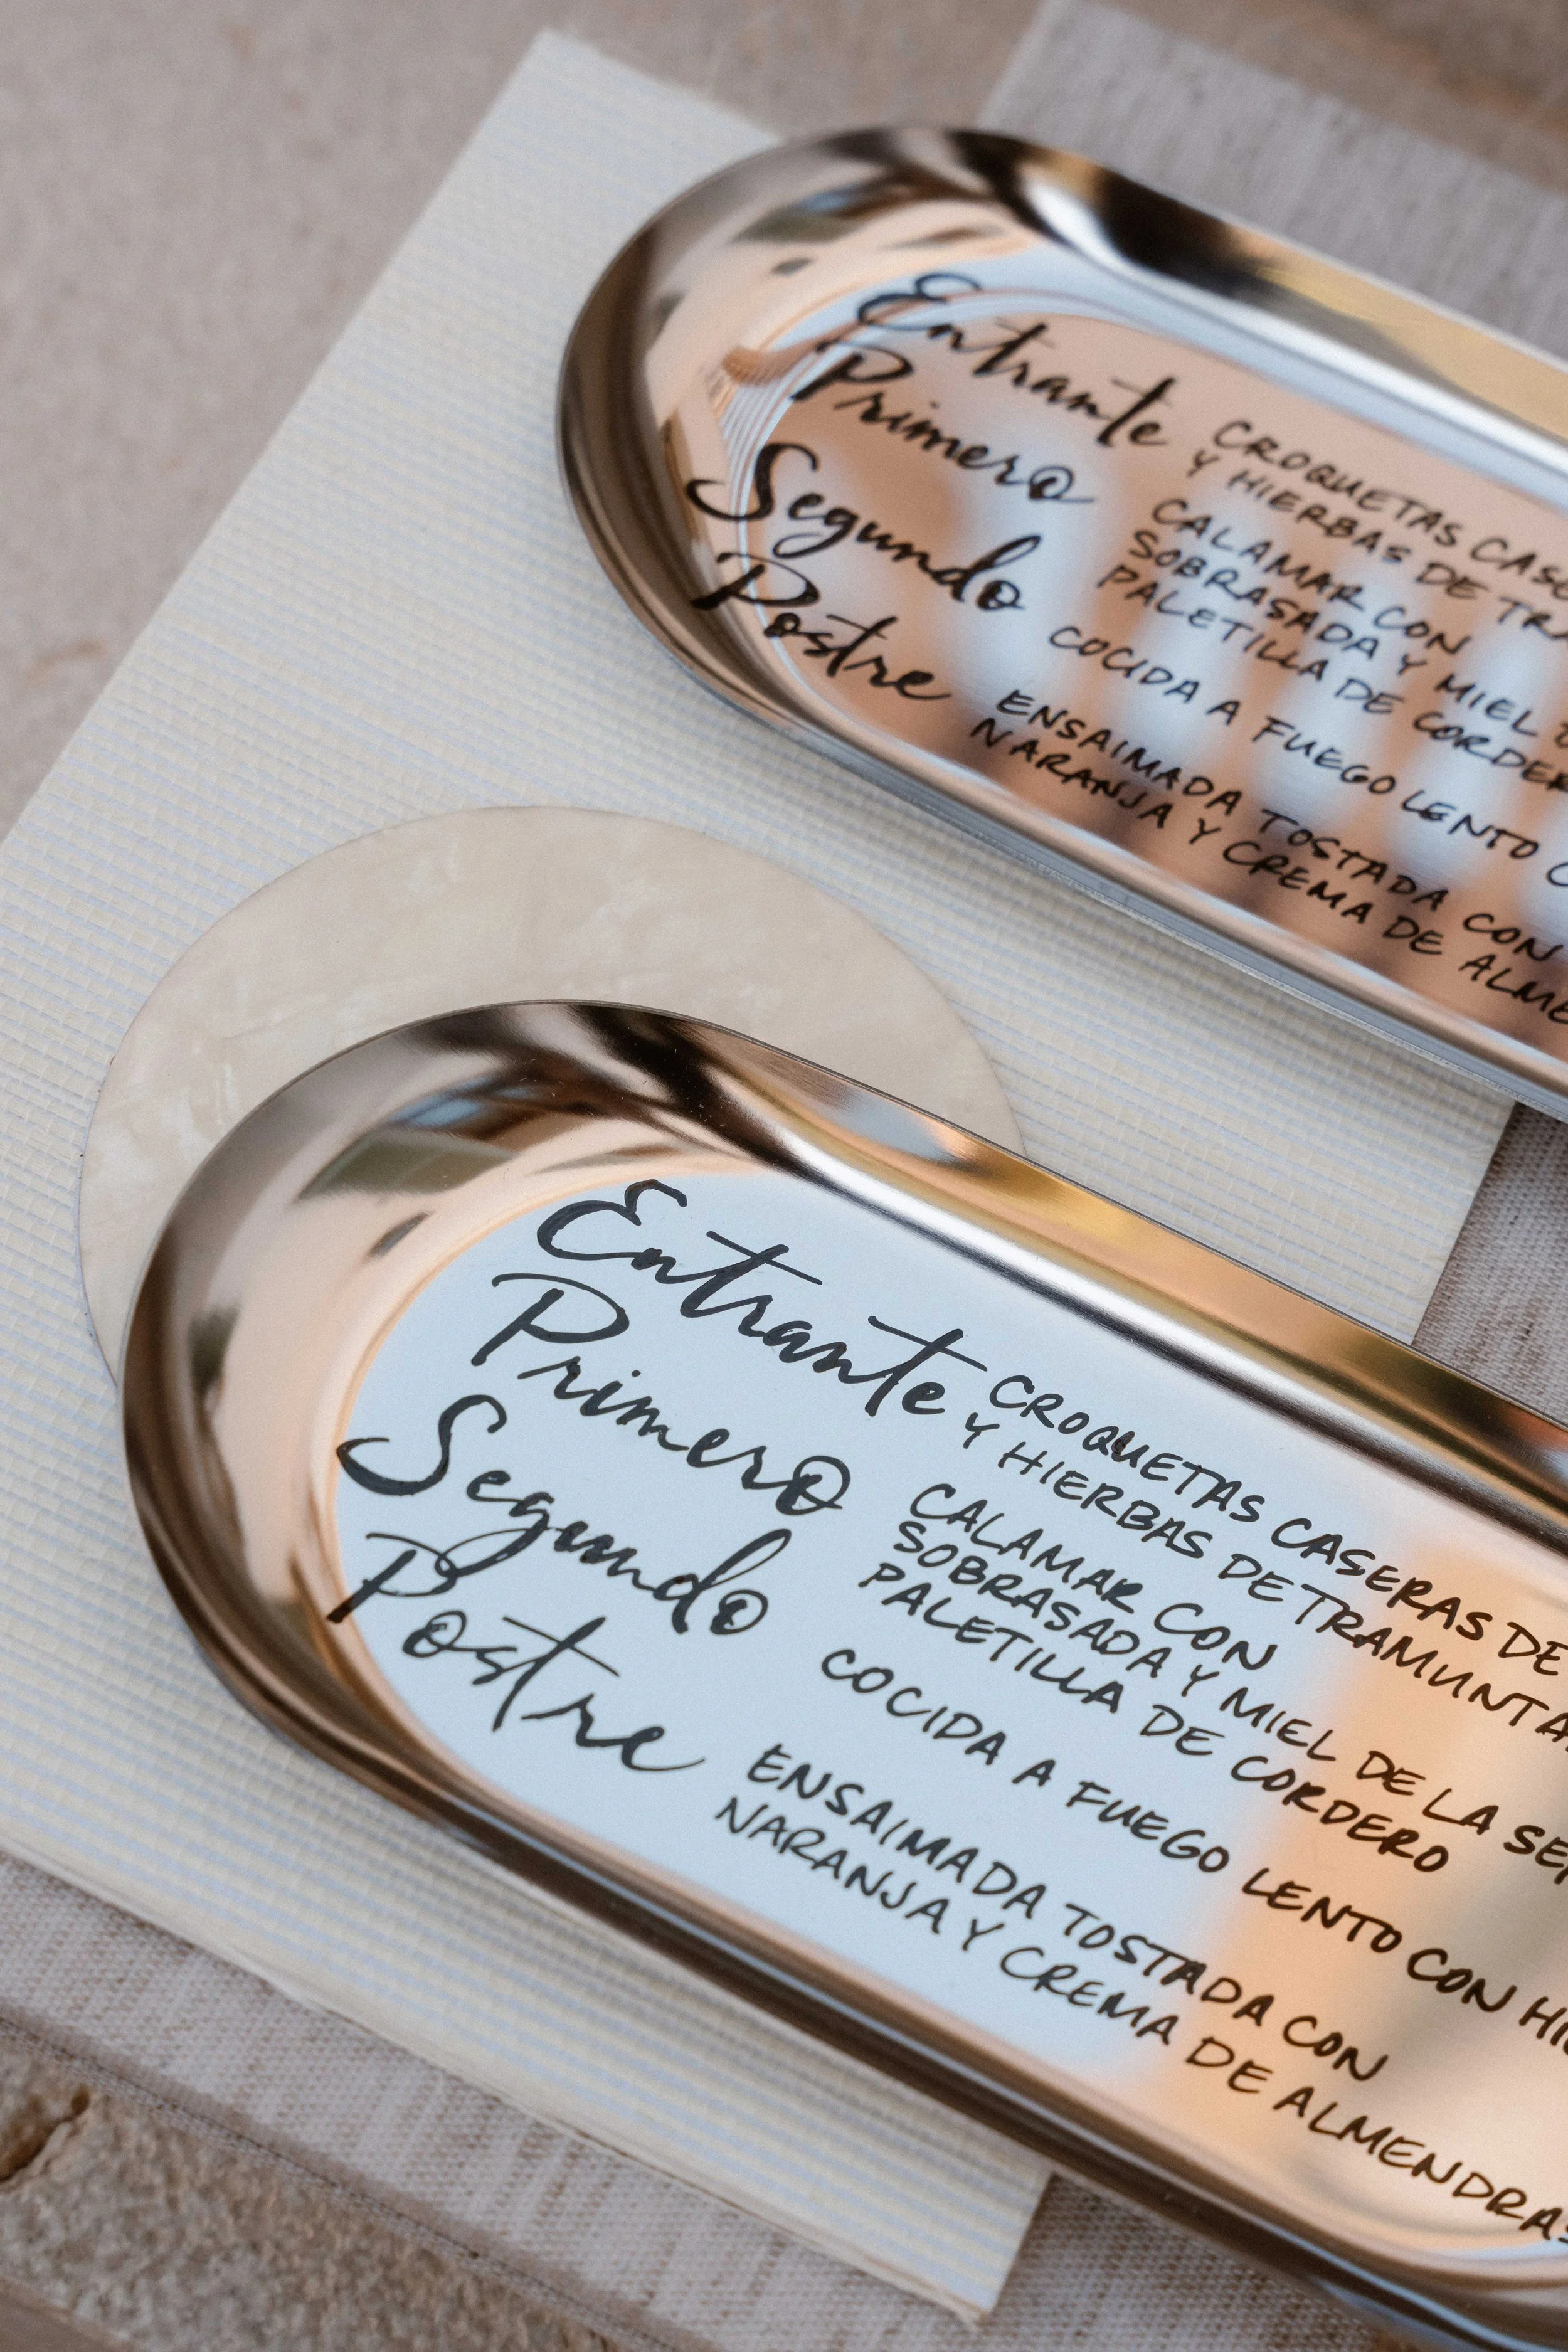 Entrante
CROQUETAS CASE
Y HIERBAS DE TRA
Primero
CALAMAR CON
SOBRASADA Y MIEL
Segundo
PALETILLA DE CORDER
COCIDA A FUEGO LENTO C
Postre
ENSAIMADA TOSTADA CON
NARANJA Y CREMA DE ALME
Entrante
CROQUETAS CASERAS DE
Y HIERBAS DE TRAMUNTA
Primero
CALAMAR CON
SOBRASADA Y MIEL DE LA SE
Segundo
PALETILLA DE CORDERO
COCIDA A FUEGO LENTO CON HI
Postre
ENSAIMADA TOSTADA CON
NARANJA Y CREMA DE ALMENDRAS